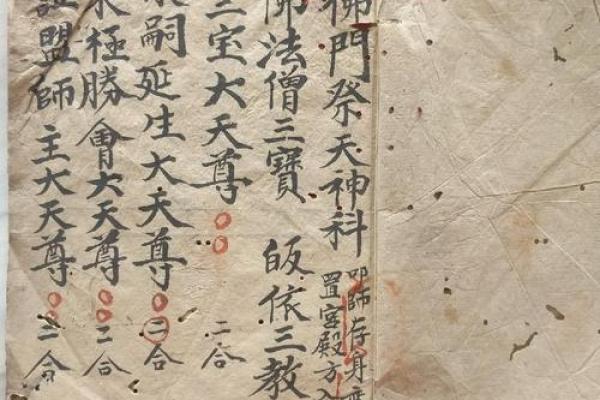 門祭天神科
叩師存身
置宮殿方入
佛法僧三寶 皈依三教
三宝大天尊 二合
嗣延生大天尊 二合
極勝會大天尊 二合
盟師主大天尊 二合